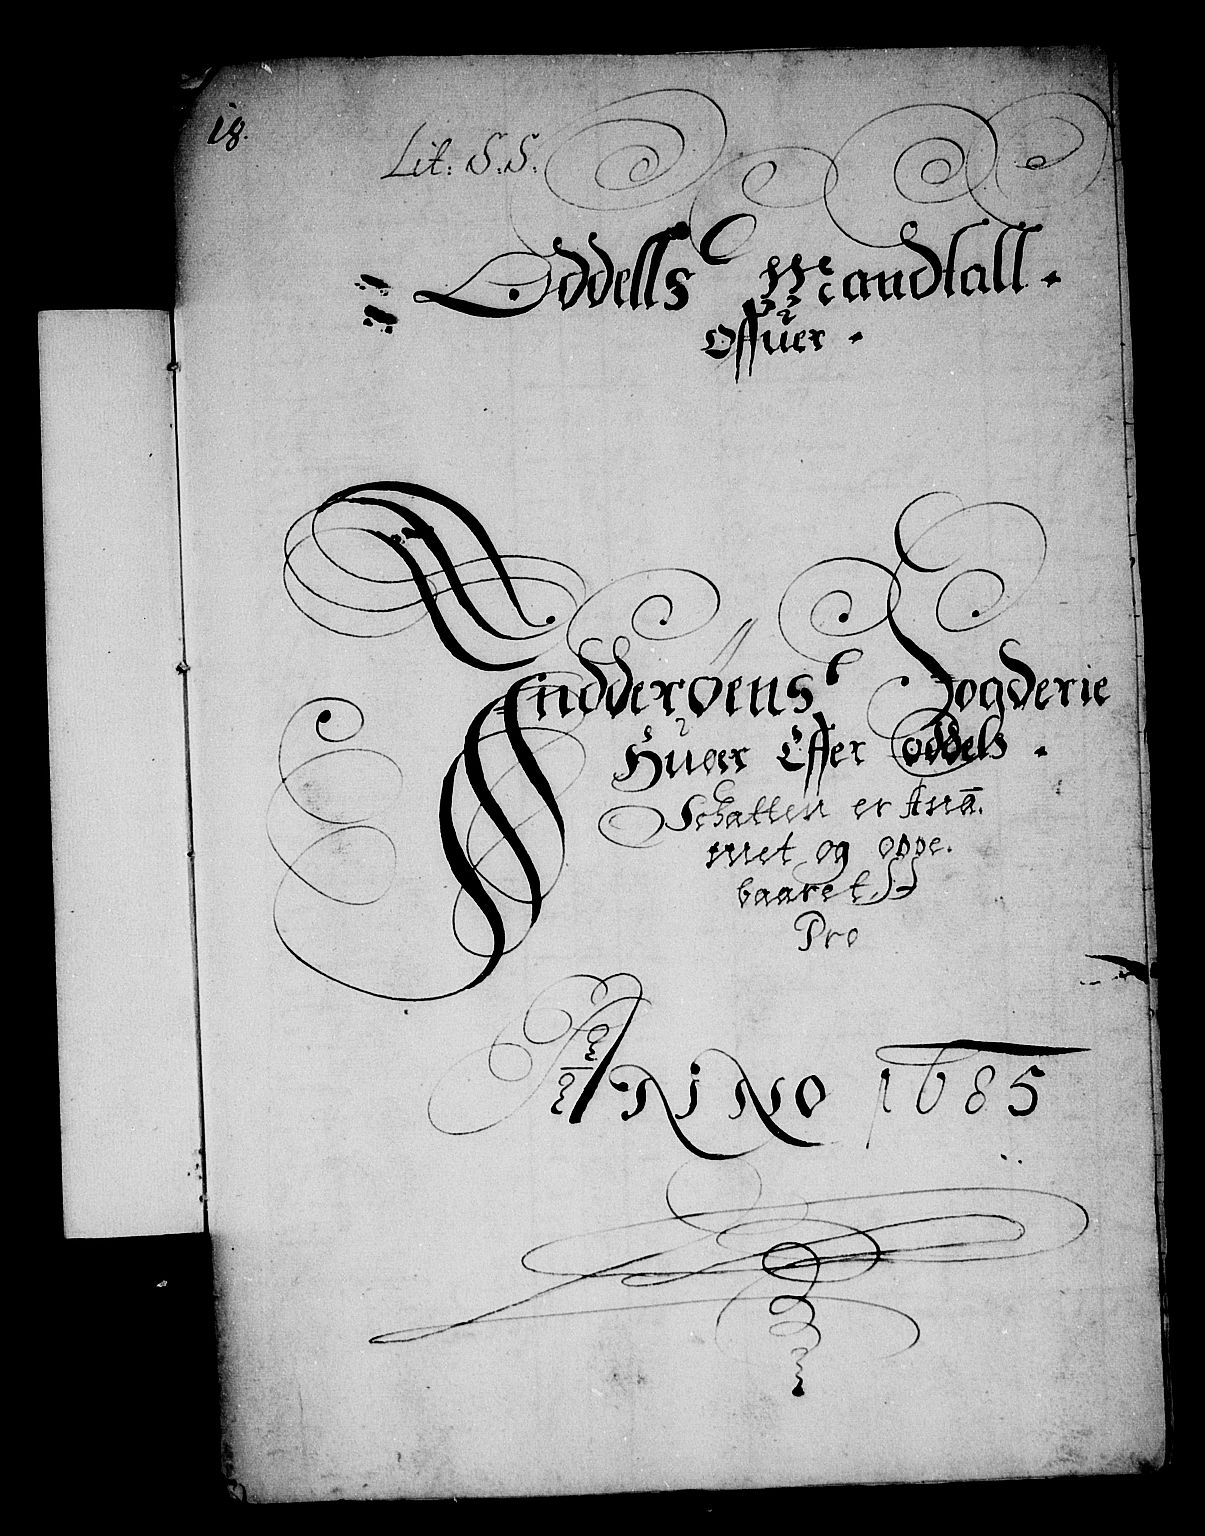 18.
Lit: S.S.
Oddells Mandtall.
Offuer.
Indderøens Fogderie
Huor Effter oddels.
Schatten er Anā.
met og oppe.
baaret
Pro
ANNO 1685